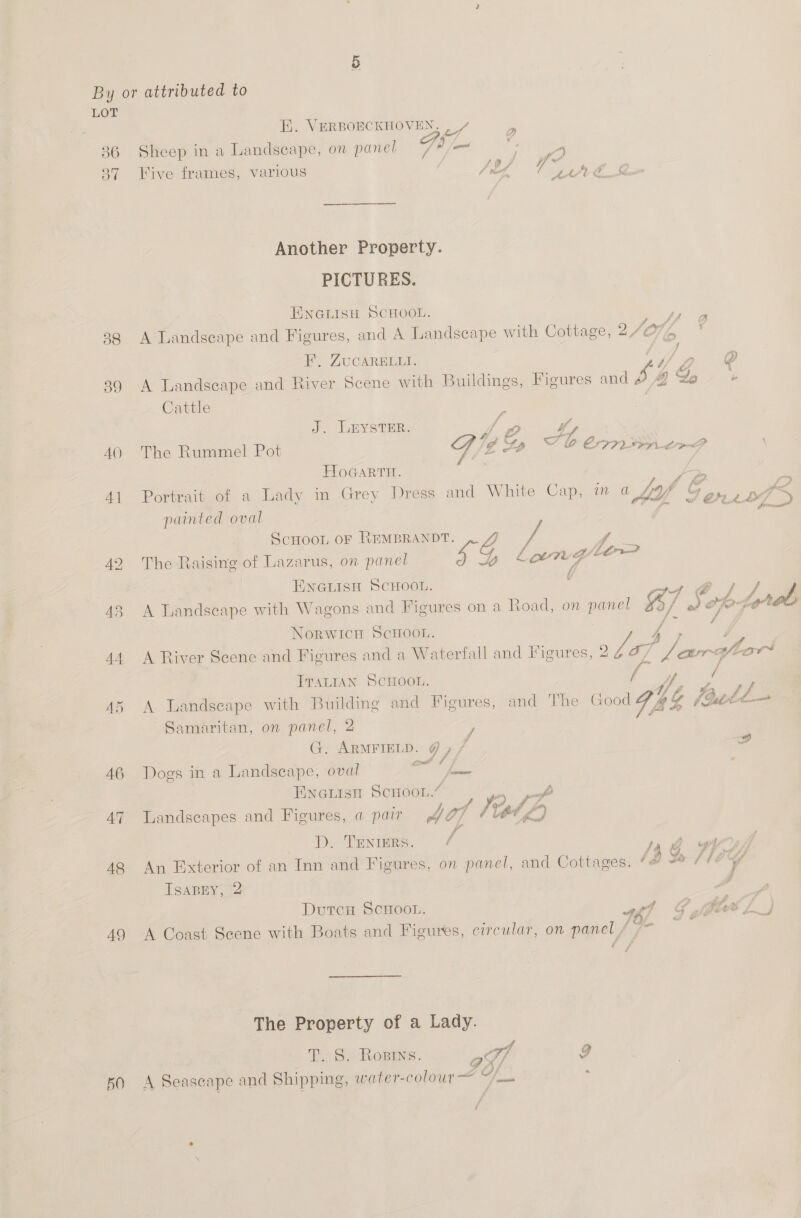 5
By or attributed to
LOT
E. VERBOECKHOVEN.
36 Sheep in a Landscape, on panel
37 Five frames, various
Another Property.
PICTURES.
ENGLISH SCHOOL.
38 A Landscape and Figures, and A Landscape with Cottage, 2
F. ZUCARELLI.
39 A Landscape and River Scene with Buildings, Figures and
Cattle
J. LEYSTER.
40 The Rummel Pot
HOGARTH.
41 Portrait of a Lady in Grey Dress and White Cap, in a
painted oval
SCHOOL OF REMBRANDT.
42 The Raising of Lazarus, on panel
ENGLISH SCHOOL.
43 A Landscape with Wagons and Figures on a Road, on panel
NORWICH SCHOOL.
44 A River Scene and Figures and a Waterfall and Figures, 2
ITALIAN SCHOOL.
45 A Landscape with Building and Figures, and The Good
Samaritan, on panel, 2
G. ARMFIELD.
46 Dogs in a Landscape, oval
ENGLISH SCHOOL.
47 Landscapes and Figures, a pair
D. TENIERS.
48 An Exterior of an Inn and Figures, on panel, and Cottages.
ISABEY, 2
DUTCH SCHOOL.
49 A Coast Scene with Boats and Figures, circular, on panel
The Property of a Lady.
T. S. ROBINS.
50 A Seascape and Shipping, water-colour